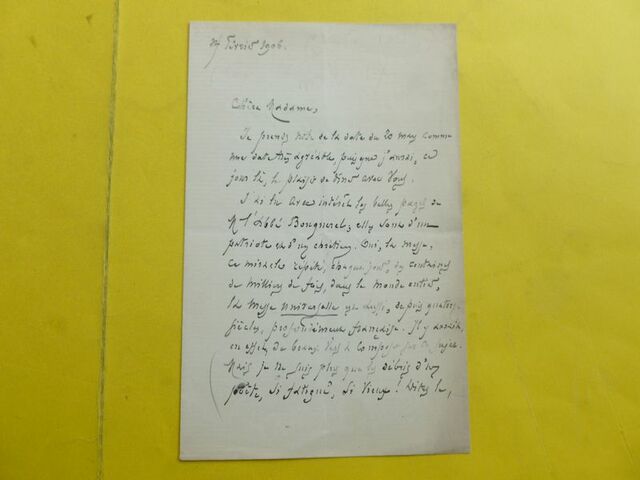 27 Février 1906.
Chère Madame,
Je prends note de la date du 20 mars comme
une date très agréable, puisque j'aurai, ce
jour là, le plaisir de dîner avec Vous.
J'ai lu avec intérêt les belles pages de
M. l'Abbé ; elles sont d'un
patriote et d'un chrétien. Oui, la messe,
ce miracle répété, chaque jour, des centaines
de milliers de fois, dans le monde entier,
la Messe universelle est aussi, depuis quatorze
siècles, profondément française. Il y aurait,
en effet, de beaux vers à composer sur ce sujet.
Mais je ne suis plus que les débris d'un
poète, si fatigué, si vieux ! Dites le,